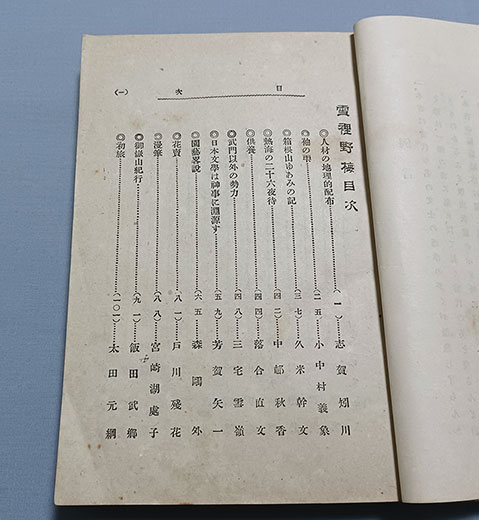 雪裡野梅目次
◎人材の地理的配布……(一)……志賀矧川
◎袖の雫……(二五)……小中村義象
◎箱根山ゆあみの記……(三七)……久米幹文
◎熱海の二十六夜待……(四二)……中邨秋香
◎供養……(四四)……落合直文
◎武門以外の勢力……(四八)……三宅雪嶺
◎日本文學は神事に淵源す……(五九)……芳賀矢一
◎園藝畧説……(六五)……森鷗外
◎花賣……(八一)……戸川殘花
◎漫筆……(八八)……宮崎湖處子
◎御嶽山紀行……(九一)……飯田武郷
◎初旅……(一〇一)……太田元綱
目次
(一)